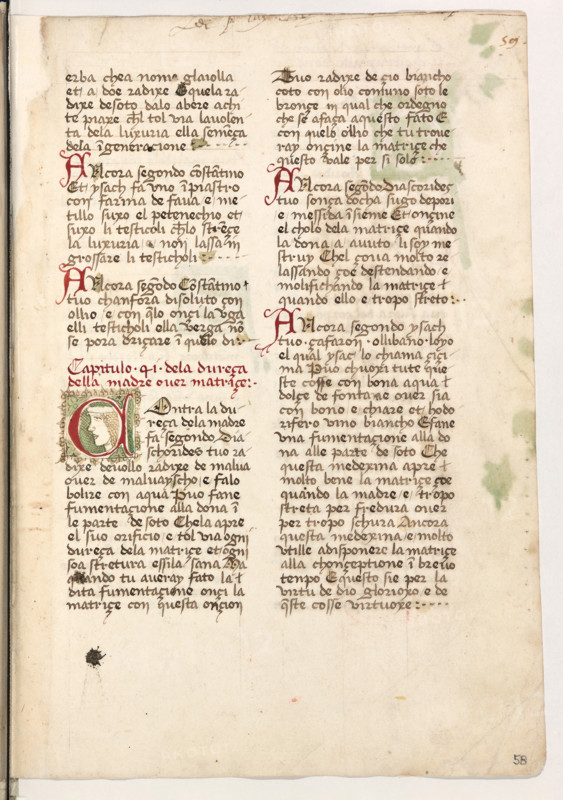 59.
erba chea nome glaiolla
et a doe radixe Equela ra-
dixe desoto dalo abere achi
te piaxe ch̄l tol via lauolen
ta dela luxuria ella semēça
dela īgeneracione :
ANcora segondo cōstātino
Et ysach fa vno īpiastro
con farina de faua e me-
tillo suxo el petenechio et
suxo li testicoli ch̄lo strēçe
la luxuria e non lassa in
grossare li testicholi :
ANcora segōdo Cōstātino
tuo chanfora disoluto con
ollio e con q̄lo onçi la vga
elli testicholi ella verga nō
se pora driçare ī quelo di :
Capitulo .qi. dela dureça
della madre ouer matriçe :
COntra la du-
reça dela madre
fa segondo Dia
schorides tuo ra-
dixe deuollo radixe de malua
ouer de maluayscho e falo
bolire con aqua Puo fane
fumentacione alla dona ī
le parte de soto Chela apre
el suo orificio e tol via ogni
dureça dela matrice et ogni
soa stretura essila sana Ma
quando tu aueray fato la
dita fumentacione onçi la
matriçe con questa onçion
Tuo radixe de çio biancho
coto con olio comuno soto le
bronçe in qual che ordegno
che se afaça aquesto fato E
con quelo ollio che tu troue
ray onçine la matriçe che
questo vale per si solo :
ANcora segōdo Diascorides
tuo sonça docha sugo de pori
e messida īsieme Et onçine
el cholo dela matriçe quando
la dona a auuto li soy me
struy Chel çoua molto re
lassando çoe destendando e
molifichando la matriçe
quando ello e tropo streto :
ANcora segondo ysach
tuo .çafaron. ollibano. loyo
el qual ysac lo chiama çiçi
ma Puo chuoxi tute que
ste cosse con bona aqua
dolçe de fontana ouer sia
con bono e chiare et hodo
rifero vino biancho E fane
vna fumentacione alla do
na alle parte de soto Che
questa medexina apre
molto bene la matriçe çoe
quando la madre e tropo
streta per fredura ouer
per tropo schura Ancora
questa medexina e molto
vtille adisponere la matriçe
alla chonceptione ī breuo
tenpo E questo sie per la
virtu de dio glorioxo e de
q̄ste cosse virtuoxe :
58